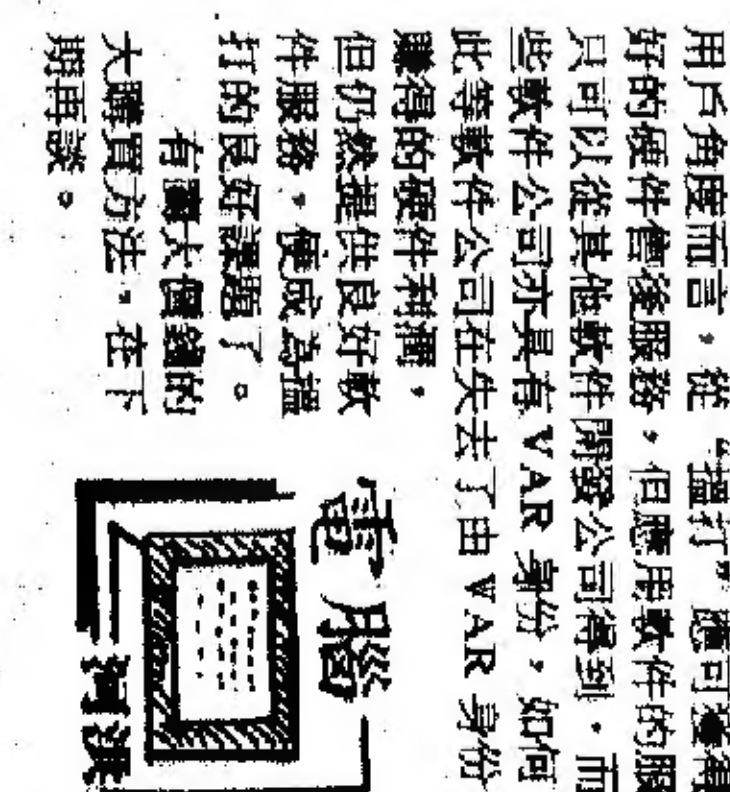 用戶角度而言，從“溫打”應可獲得
好的硬件售後服務，但應用軟件的服
只可以從其他軟件開發公司得到。而
些軟件公司亦具有 VAR 身份，如何
此等軟件公司在失去了由 VAR 身份
賺得的硬件利潤，
但仍然提供良好軟
件服務，便成為溫
打的良好課題了。
有關大價錢的
大購買方法，在下
期再談。
電腦